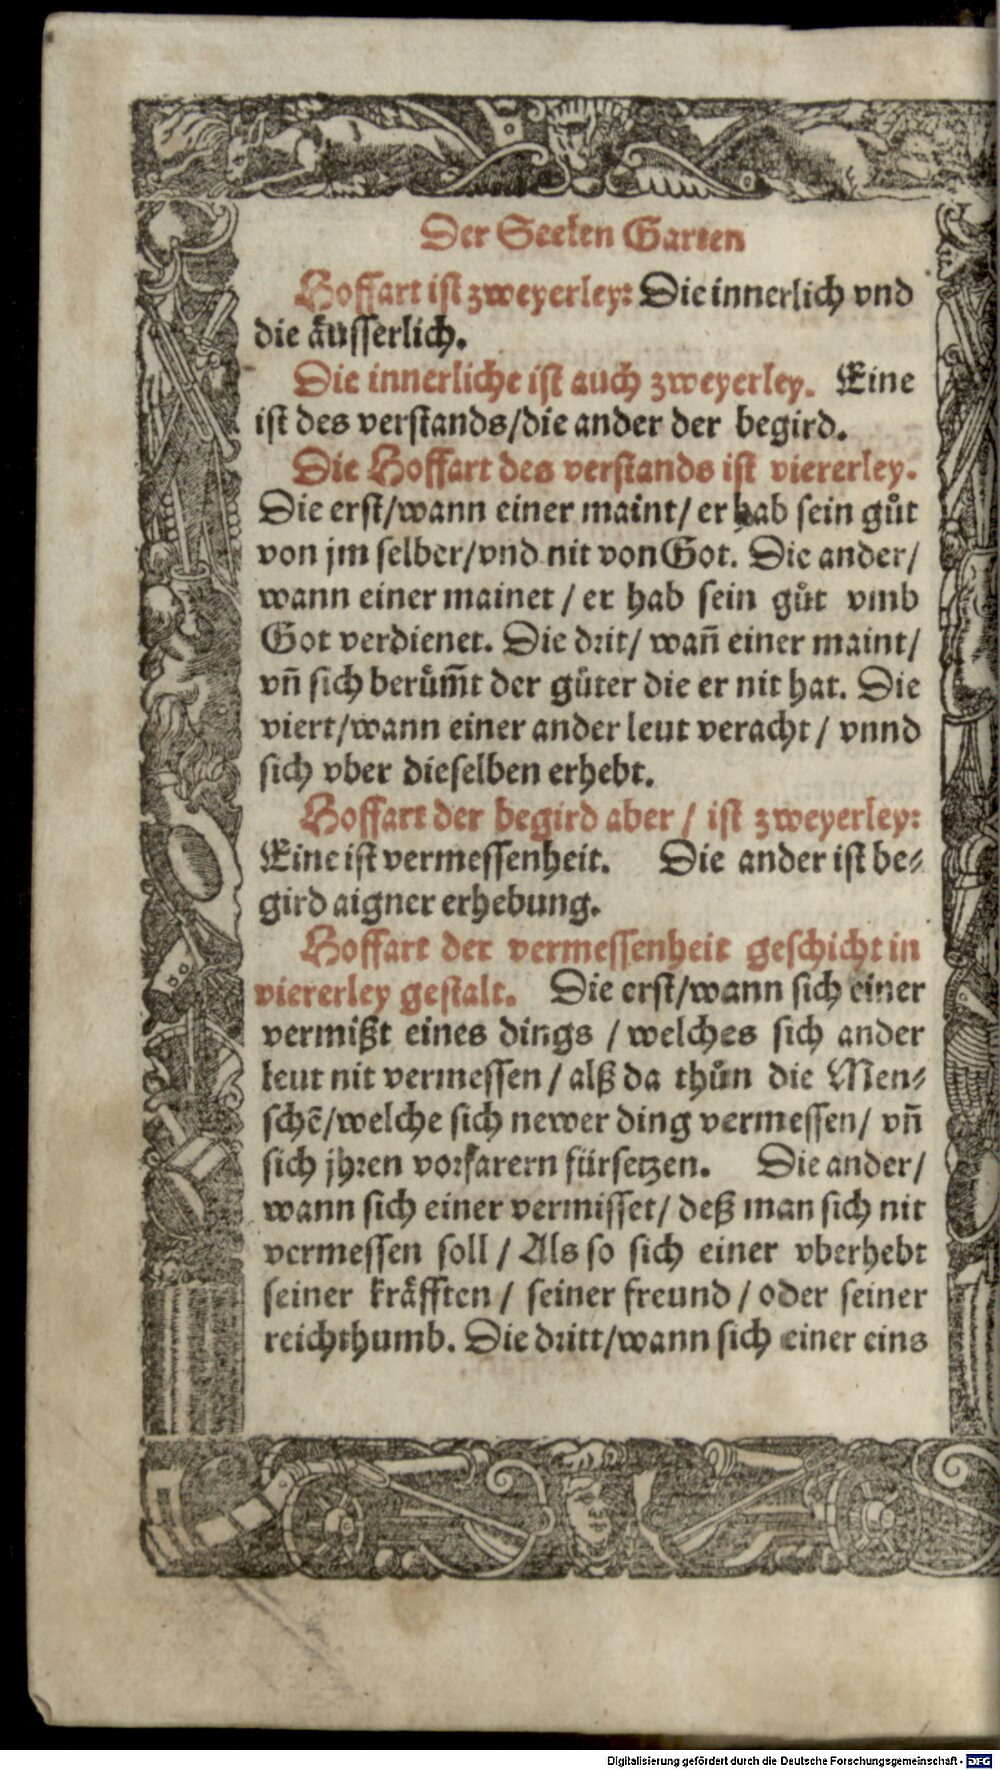 Der Seelen Garten
Hoffart ist zweyerley: Die innerlich vnd
die äusserlich.
Die innerliche ist auch zweyerley. Eine
ist des verstands/die ander der begird.
Die Hoffart des verstands ist viererley.
Die erst/wann einer maint/ er hab sein gůt
von jm selber/vnd nit von Got. Die ander/
wann einer mainet / er hab sein gůt vmb
Got verdienet. Die drit/ wañ einer maint/
vñ sich berům̃t der gůter die er nit hat. Die
viert/wann einer ander leut veracht / vnnd
sich vber dieselben erhebt.
Hoffart der begird aber / ist zweyerley:
Eine ist vermessenheit. Die ander ist be⸗
gird aigner erhebung.
Hoffart der vermessenheit geschicht in
viererley gestalt. Die erst/wann sich einer
vermißt eines dings / welches sich ander
leut nit vermessen / alß da thůn die Men⸗
schẽ/welche sich newer ding vermessen/ vñ
sich jhren vorfarern fürsetzen. Die ander/
wann sich einer vermisset/ deß man sich nit
vermessen soll / Als so sich einer vberhebt
seiner kräfften / seiner freund / oder seiner
reichthumb. Die dritt/wann sich einer eins
Digitalisierung gefördert durch die Deutsche Forschungsgemeinschaft - DFG